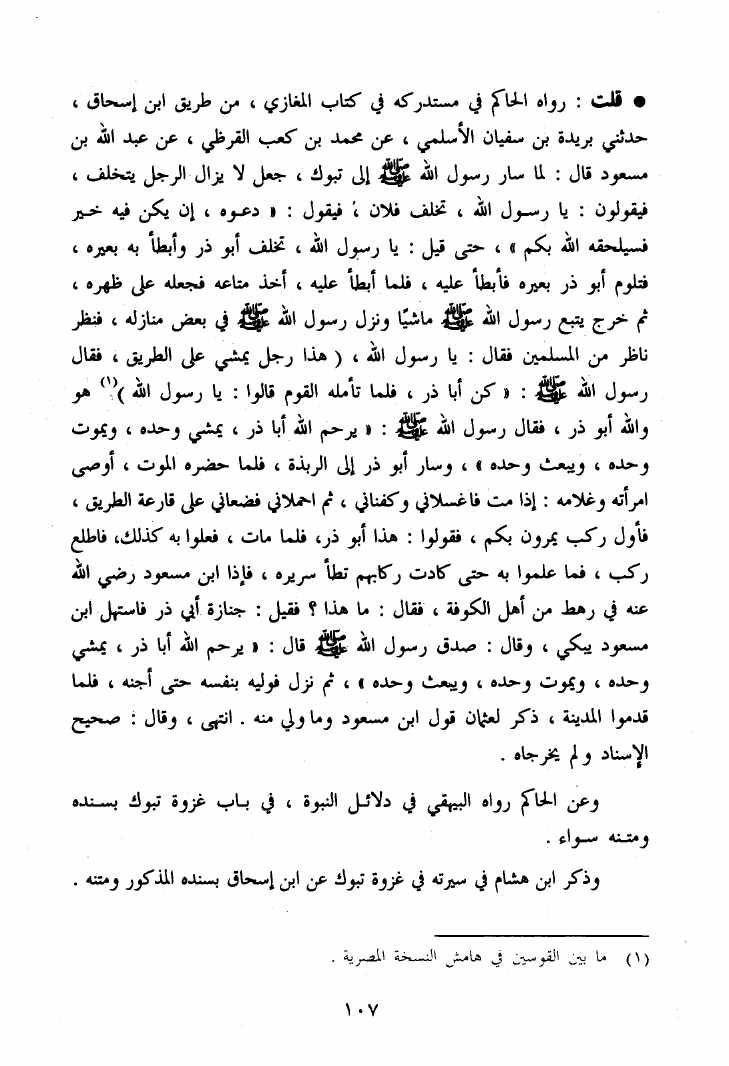 ● قلت : رواه الحاكم في مستدركه في كتاب المغازي ، من طريق ابن إسحاق ،
حدثني بريدة بن سفيان الأسلمي ، عن محمد بن كعب القرظي ، عن عبد الله بن
مسعود قال : لما سار رسول الله ﷺ إلى تبوك ، جعل لا يزال الرجل يتخلف ،
فيقولون : يا رسول الله ، تخلف فلان ، فيقول : « دعوه ، إن يكن فيه خير
فسيلحقه الله بكم » ، حتى قيل : يا رسول الله ، تخلف أبو ذر وأبطأ به بعيره ،
فتلوم أبو ذر بعيره فأبطأ عليه ، فلما أبطأ عليه ، أخذ متاعه فجعله على ظهره ،
ثم خرج يتبع رسول الله ﷺ ماشيًا ونزل رسول الله ﷺ في بعض منازله ، فنظر
ناظر من المسلمين فقال : يا رسول الله ، ( هذا رجل يمشي على الطريق ، فقال
رسول الله ﷺ : « كن أبا ذر ، فلما تأمله القوم قالوا : يا رسول الله )(١) هو
والله أبو ذر ، فقال رسول الله ﷺ : « يرحم الله أبا ذر ، يمشي وحده ، ويموت
وحده ، ويبعث وحده » ، وسار أبو ذر إلى الربذة ، فلما حضره الموت ، أوصى
امرأته وغلامه : إذا مت فاغسلاني وكفناني ، ثم احملاني فضعاني على قارعة الطريق ،
فأول ركب يمرون بكم ، فقولوا : هذا أبو ذر، فلما مات ، فعلوا به كذلك، فاطلع
ركب ، فما علموا به حتى كادت ركابهم تطأ سريره ، فإذا ابن مسعود رضي الله
عنه في رهط من أهل الكوفة ، فقال : ما هذا ؟ فقيل : جنازة أبي ذر فاستهل ابن
مسعود يبكي ، وقال : صدق رسول الله ﷺ قال : « يرحم الله أبا ذر ، يمشي
وحده ، ويموت وحده ، ويبعث وحده » ، ثم نزل فوليه بنفسه حتى أجنه ، فلما
قدموا المدينة ، ذكر لعثمان قول ابن مسعود وما ولي منه . انتهى ، وقال : صحيح
الإسناد ولم يخرجاه .
وعن الحاكم رواه البيهقي في دلائل النبوة ، في باب غزوة تبوك بسنده
ومتنه سواء .
وذكر ابن هشام في سيرته في غزوة تبوك عن ابن إسحاق بسنده المذكور ومتنه .
(١) ما بين القوسين في هامش النسخة المصرية .
١٠٧